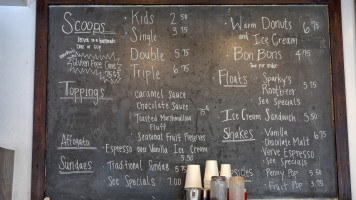 Scoops
Served in a housemade
cone or cup
Gluten Free Cone
.75
· Kids 2.50
· Single 3.75
Double 5.75
Triple 6.75
Toppings
caramel sauce
chocolate sauce
Toasted Marshmallow
Fluff
Seasonal Fruit Preserves
.75
Affogato
· Espresso over Vanilla Ice Cream
5.50
Sundaes
· Traditional Sundae 5.75
· See Specials 7.00
· Warm Donuts 6.75
and Ice Cream
· Bon Bons 4.75
two per order
Floats
· Sparky's
Rootbeer
See Specials
5.75
Ice Cream Sandwich 5.50
Shakes
· Vanilla 6.75
· Chocolate Malt
· Verve Espresso
· See Specials
· Penny Pop 5.50
· Fruit Pop 3.75